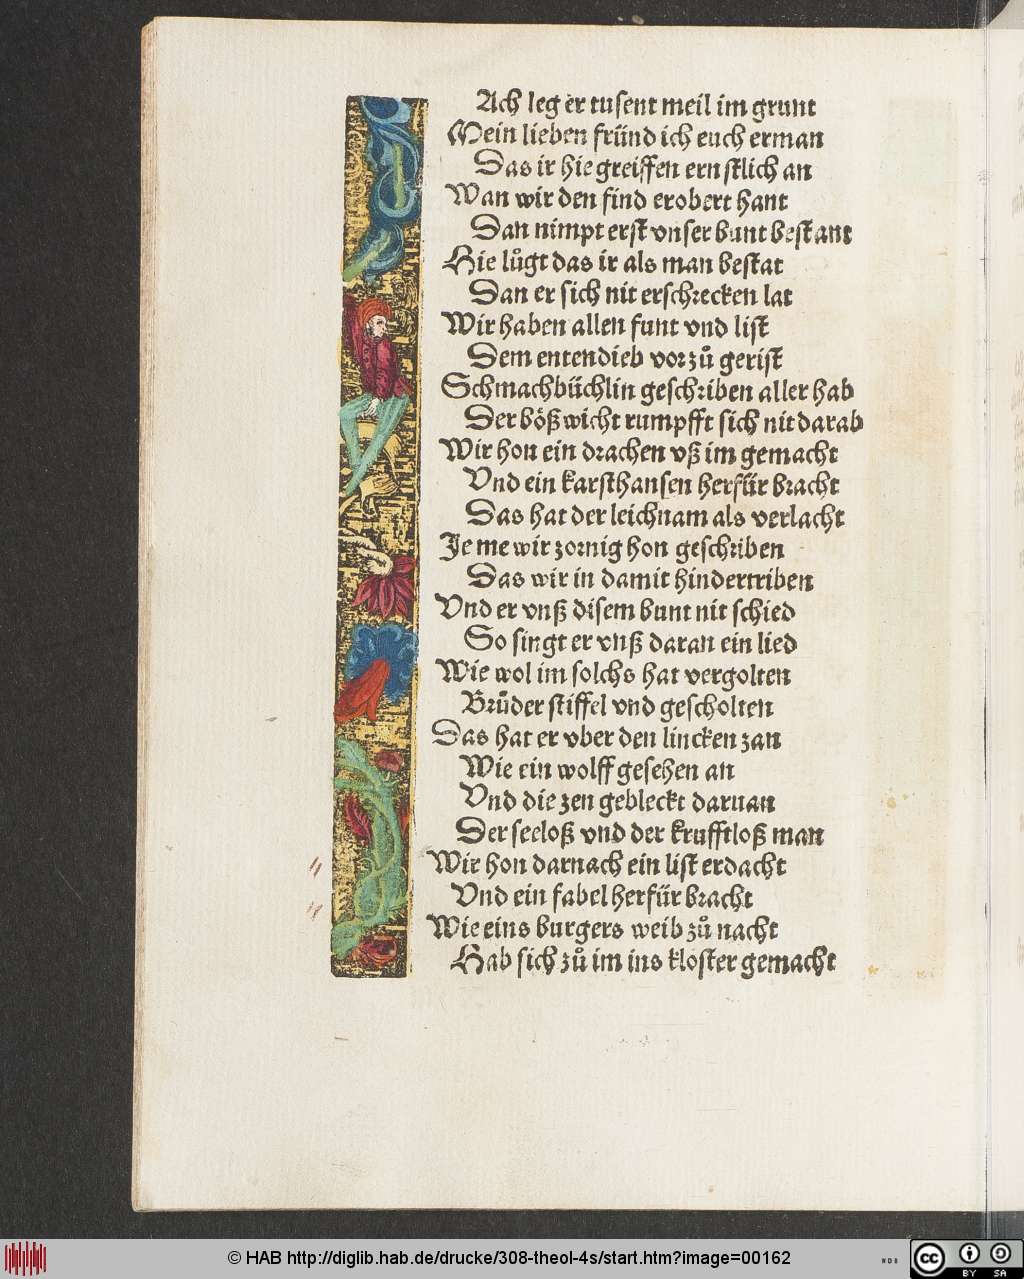 Ach leg er tusent meil im grunt
Mein lieben fründ ich euch erman
Das ir hie greiffen ernstlich an
Wan wir den find erobert hant
Dan nimpt erst vnser bunt bestant
Hie lůgt das ir als man bestat
Dan er sich nit erschrecken lat
Wir haben allen funt vnd list
Dem entendieb vor zů gerist
Schmachbüchlin geschriben aller hab
Der bößwicht rumpfft sich nit darab
Wir hon ein drachen vß im gemacht
Vnd ein karsthansen herfür bracht
Das hat der leichnam als verlacht
Je me wir zornig hon geschriben
Das wir in damit hindertriben
Vnd er vnß disem bunt nit schied
So singt er vnß daran ein lied
Wie wol im solchs hat vergolten
Brůder stiffel vnd gescholten
Das hat er vber den lincken zan
Wie ein wolff gesehen an
Vnd die zen gebleckt daruan
Der seeloß vnd der krufftloß man
Wir hon darnach ein list erdacht
Vnd ein fabel herfür bracht
Wie eins burgers weib zů nacht
Hab sich zů im ins kloster gemacht
© HAB http://diglib.hab.de/drucke/308-theol-4s/start.htm?image=00162
WDB
cc BY SA